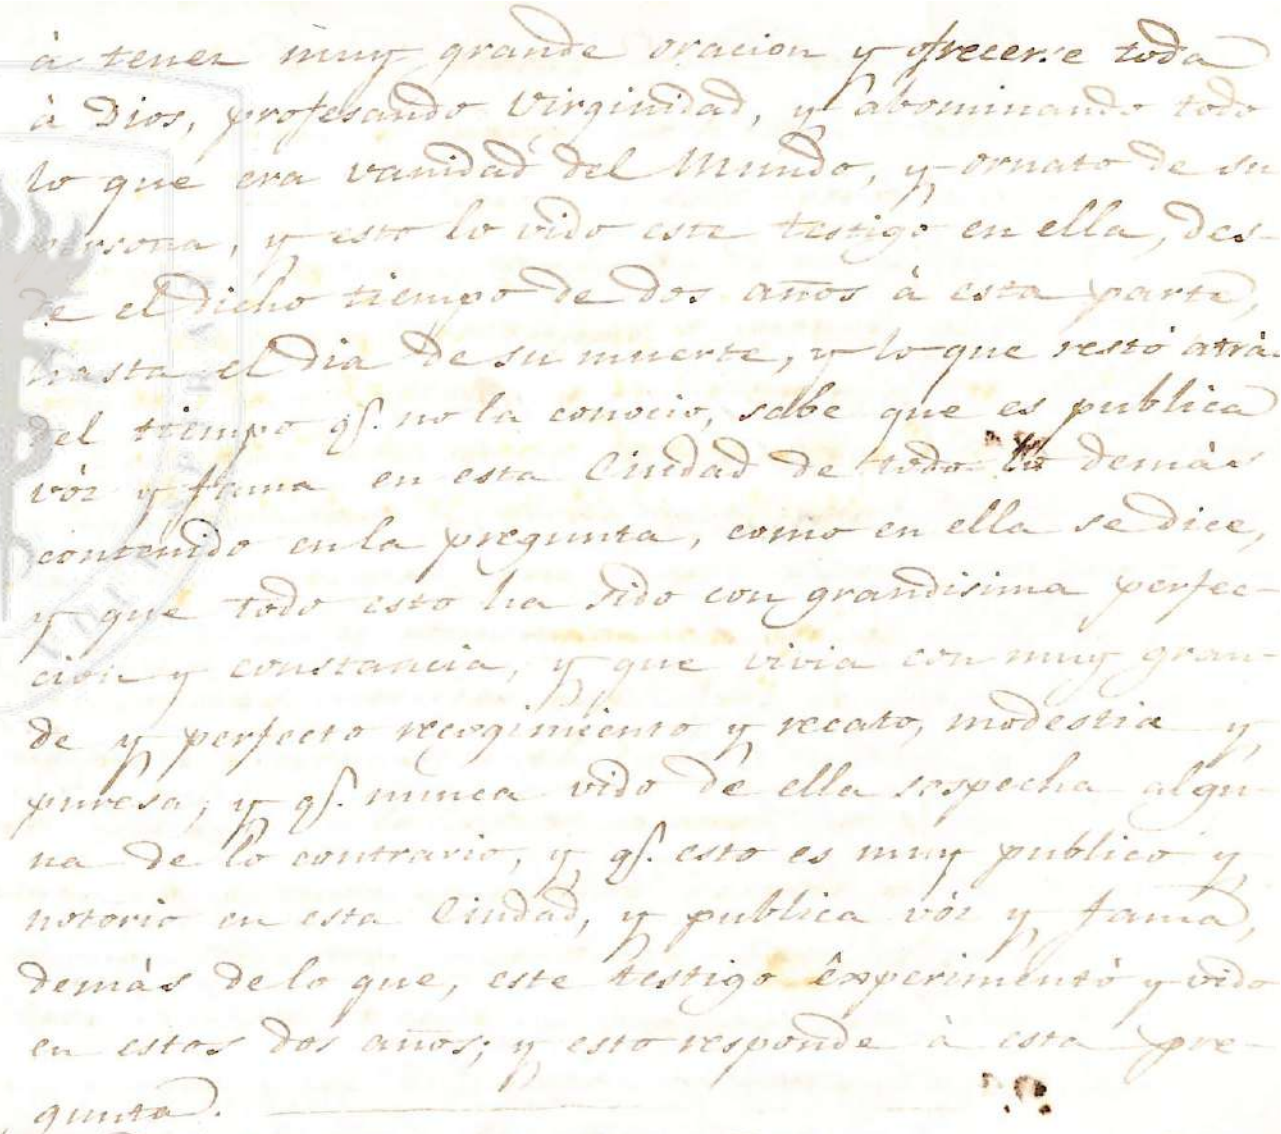 à tener muy grande oracion y ofrecerse toda
à Dios, profesando Virginidad, y abominando todo
lo que era vanidad del Mundo, y ornato de su
persona, y esto lo vido este testigo en ella, des-
de el dicho tiempo de dos años à esta parte,
hasta el dia de su muerte, y lo que restó atrà
del tiempo qᵉ. no la conocio, sabe que es publica
vòz y fama en esta Ciudad de todo lo demàs
contenido en la pregunta, como en ella se dice,
y que todo esto ha sido con grandisima perfec-
cion y constancia, y que vivia con muy gran-
de y perfecto recogimiento y recato, modestia y
puresa, y qᵉ. nunca vido de ella sospecha algu-
na de lo contrario, y qᵉ. esto es muy publico y
notorio en esta Ciudad, y publica vòz y fama,
demàs de lo que, este testigo experimentò y vido
en estos dos años; y esto responde à esta pre-
gunta.